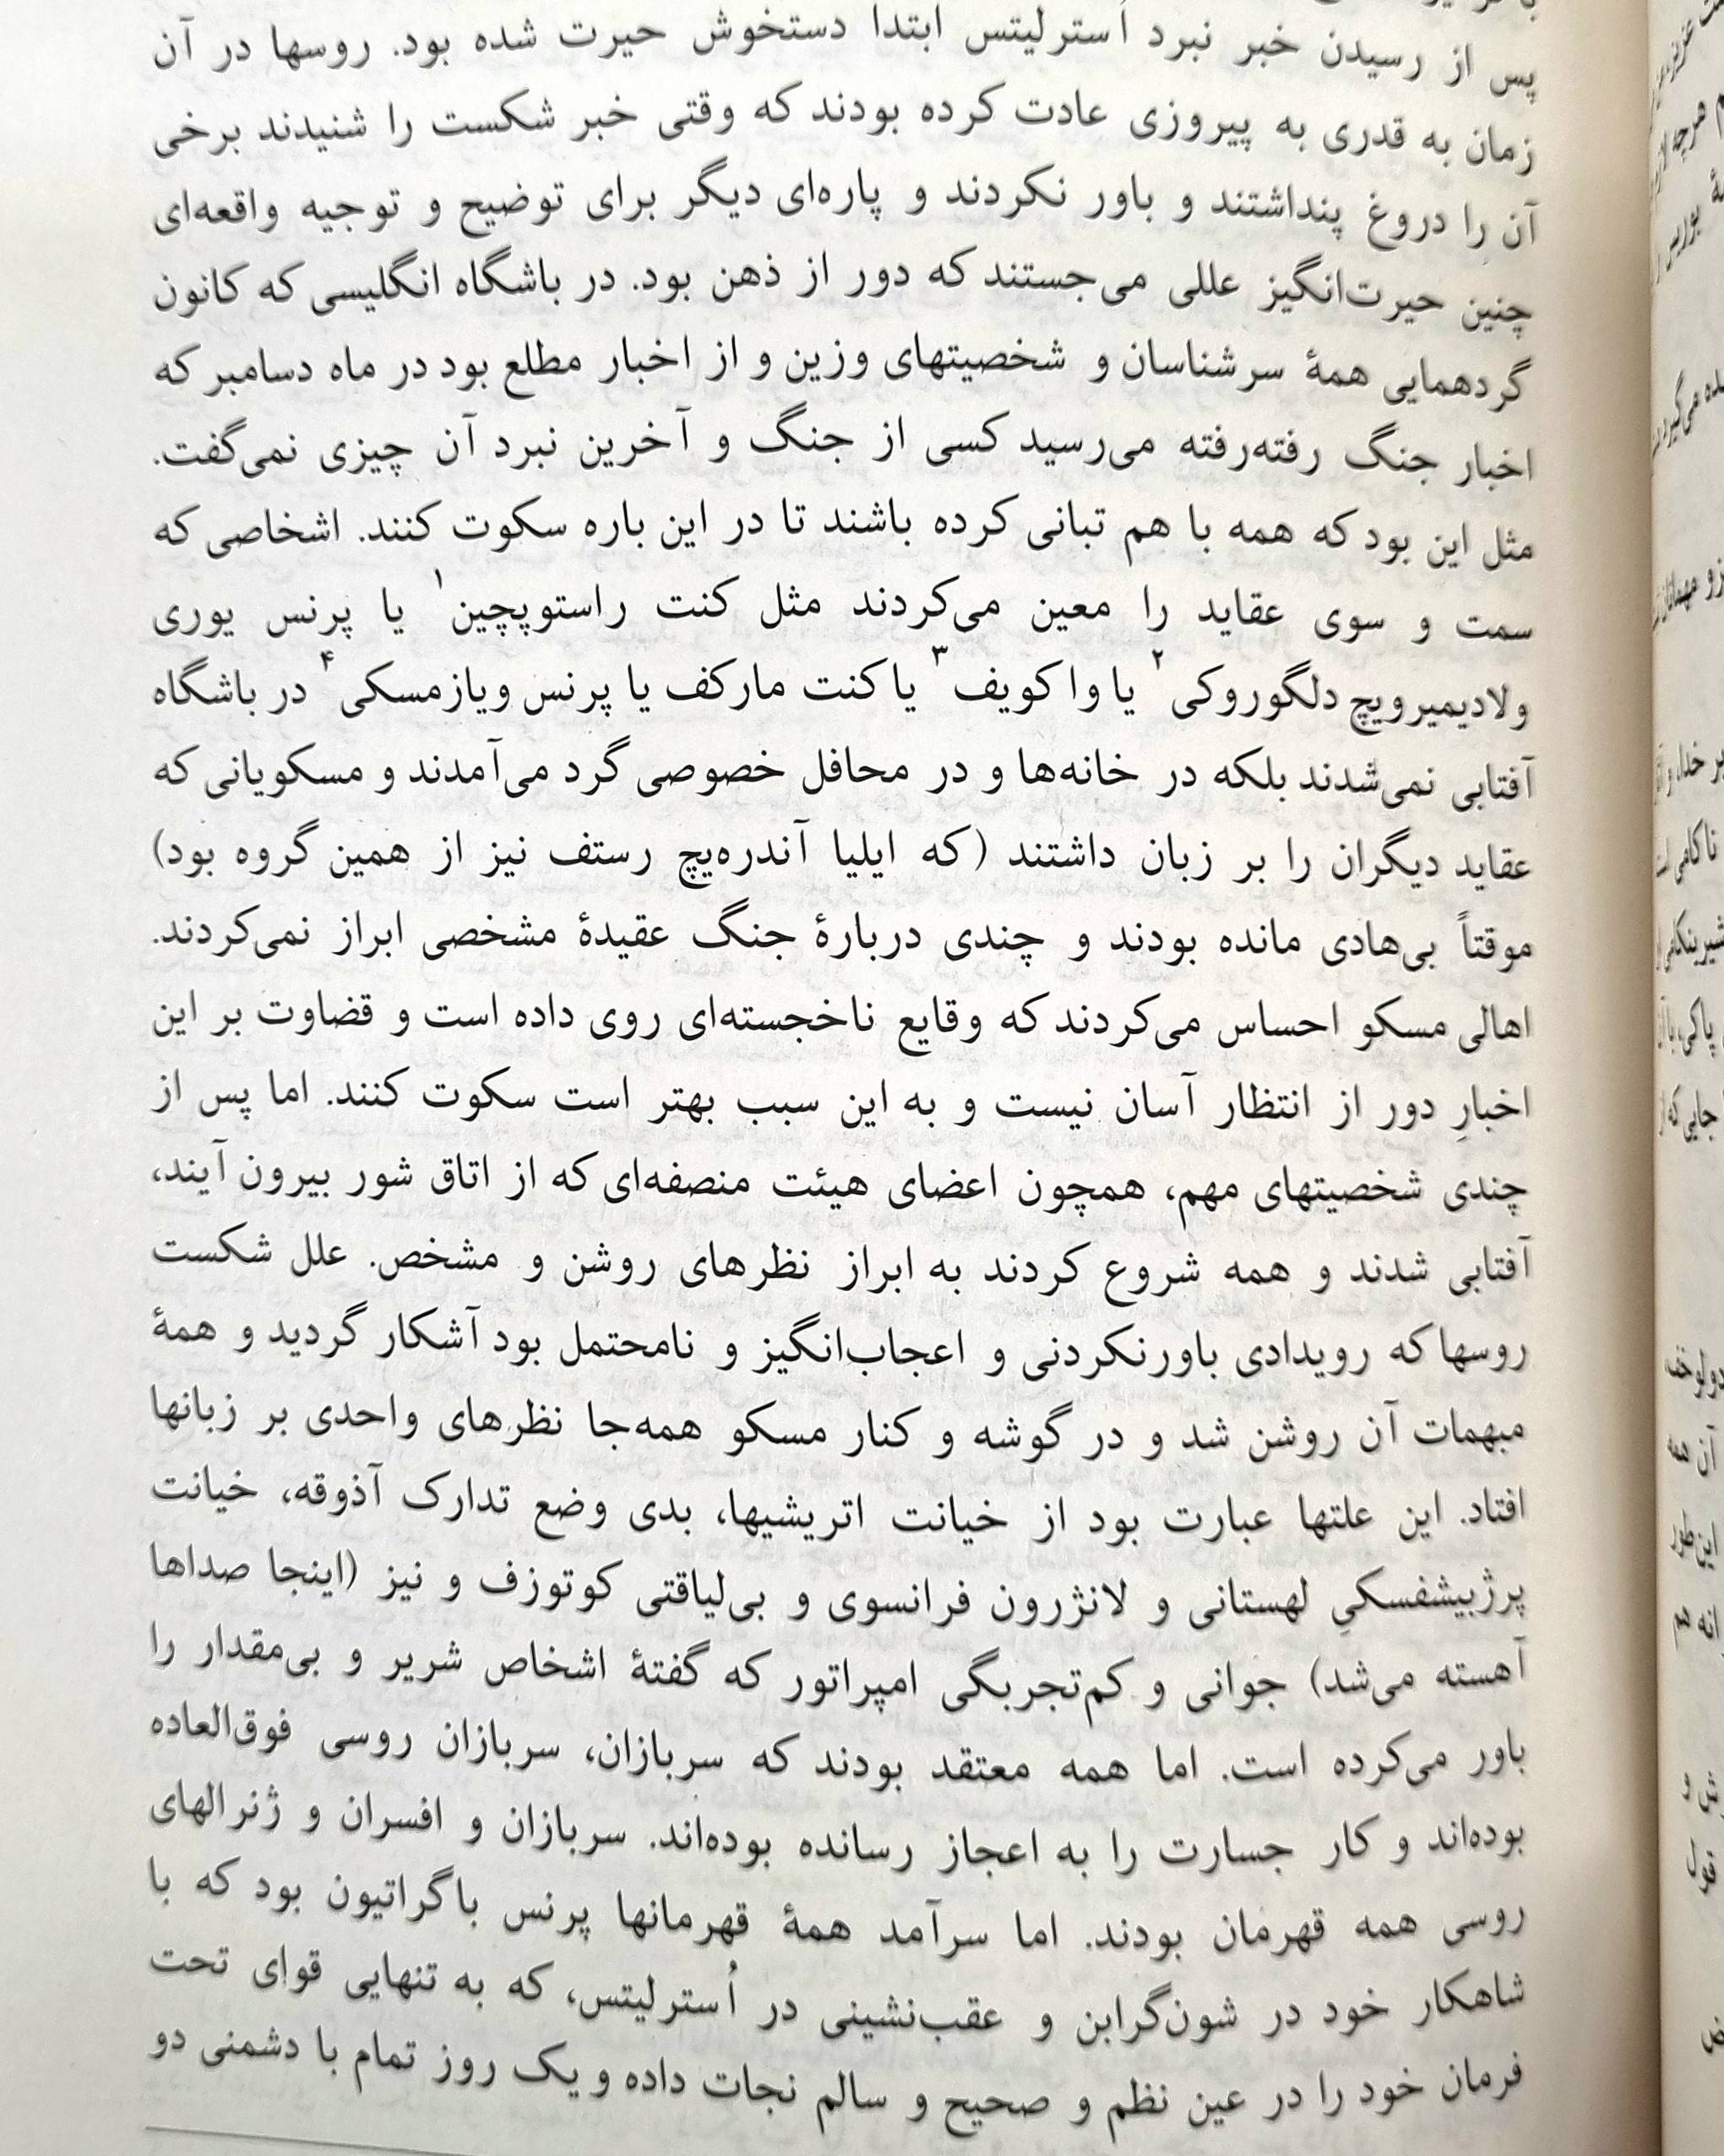 پس از رسیدن خبر نبرد اُسترلیتس ابتدا دستخوش حیرت شده بود. روسها در آن
زمان به قدری به پیروزی عادت کرده بودند که وقتی خبر شکست را شنیدند برخی
آن را دروغ پنداشتند و باور نکردند و پاره‌ای دیگر برای توضیح و توجیه واقعه‌ای
چنین حیرت‌انگیز عللی می‌جستند که دور از ذهن بود. در باشگاه انگلیسی که کانون
گردهمایی همهٔ سرشناسان و شخصیتهای وزین و از اخبار مطلع بود در ماه دسامبر که
اخبار جنگ رفته‌رفته می‌رسید کسی از جنگ و آخرین نبرد آن چیزی نمی‌گفت.
مثل این بود که همه با هم تبانی کرده باشند تا در این باره سکوت کنند. اشخاصی که
سمت و سوی عقاید را معین می‌کردند مثل کنت راستوپچین۱ یا پرنس یوری
ولادیمیرویچ دلگوروکی۲ یا واکویف۳ یا کنت مارکف یا پرنس ویازمسکی۴ در باشگاه
آفتابی نمی‌شدند بلکه در خانه‌ها و در محافل خصوصی گرد می‌آمدند و مسکویانی که
عقاید دیگران را بر زبان داشتند (که ایلیا آندره‌یچ رستف نیز از همین گروه بود)
موقتاً بی‌هادی مانده بودند و چندی دربارهٔ جنگ عقیدهٔ مشخصی ابراز نمی‌کردند.
اهالی مسکو احساس می‌کردند که وقایع ناخجسته‌ای روی داده است و قضاوت بر این
اخبارِ دور از انتظار آسان نیست و به این سبب بهتر است سکوت کنند. اما پس از
چندی شخصیتهای مهم، همچون اعضای هیئت منصفه‌ای که از اتاق شور بیرون آیند،
آفتابی شدند و همه شروع کردند به ابراز نظرهای روشن و مشخص. علل شکست
روسها که رویدادی باورنکردنی و اعجاب‌انگیز و نامحتمل بود آشکار گردید و همهٔ
مبهمات آن روشن شد و در گوشه و کنار مسکو همه‌جا نظرهای واحدی بر زبانها
افتاد. این علتها عبارت بود از خیانت اتریشیها، بدی وضع تدارک آذوقه، خیانت
پرژبیشفسکیِ لهستانی و لانژرون فرانسوی و بی‌لیاقتی کوتوزف و نیز (اینجا صداها
آهسته می‌شد) جوانی و کم‌تجربگی امپراتور که گفتهٔ اشخاص شریر و بی‌مقدار را
باور می‌کرده است. اما همه معتقد بودند که سربازان، سربازان روسی فوق‌العاده
بوده‌اند و کار جسارت را به اعجاز رسانده بوده‌اند. سربازان و افسران و ژنرالهای
روسی همه قهرمان بودند. اما سرآمد همهٔ قهرمانها پرنس باگراتیون بود که با
شاهکار خود در شون‌گرابن و عقب‌نشینی در اُسترلیتس، که به تنهایی قوای تحت
فرمان خود را در عین نظم و صحیح و سالم نجات داده و یک روز تمام با دشمنی دو